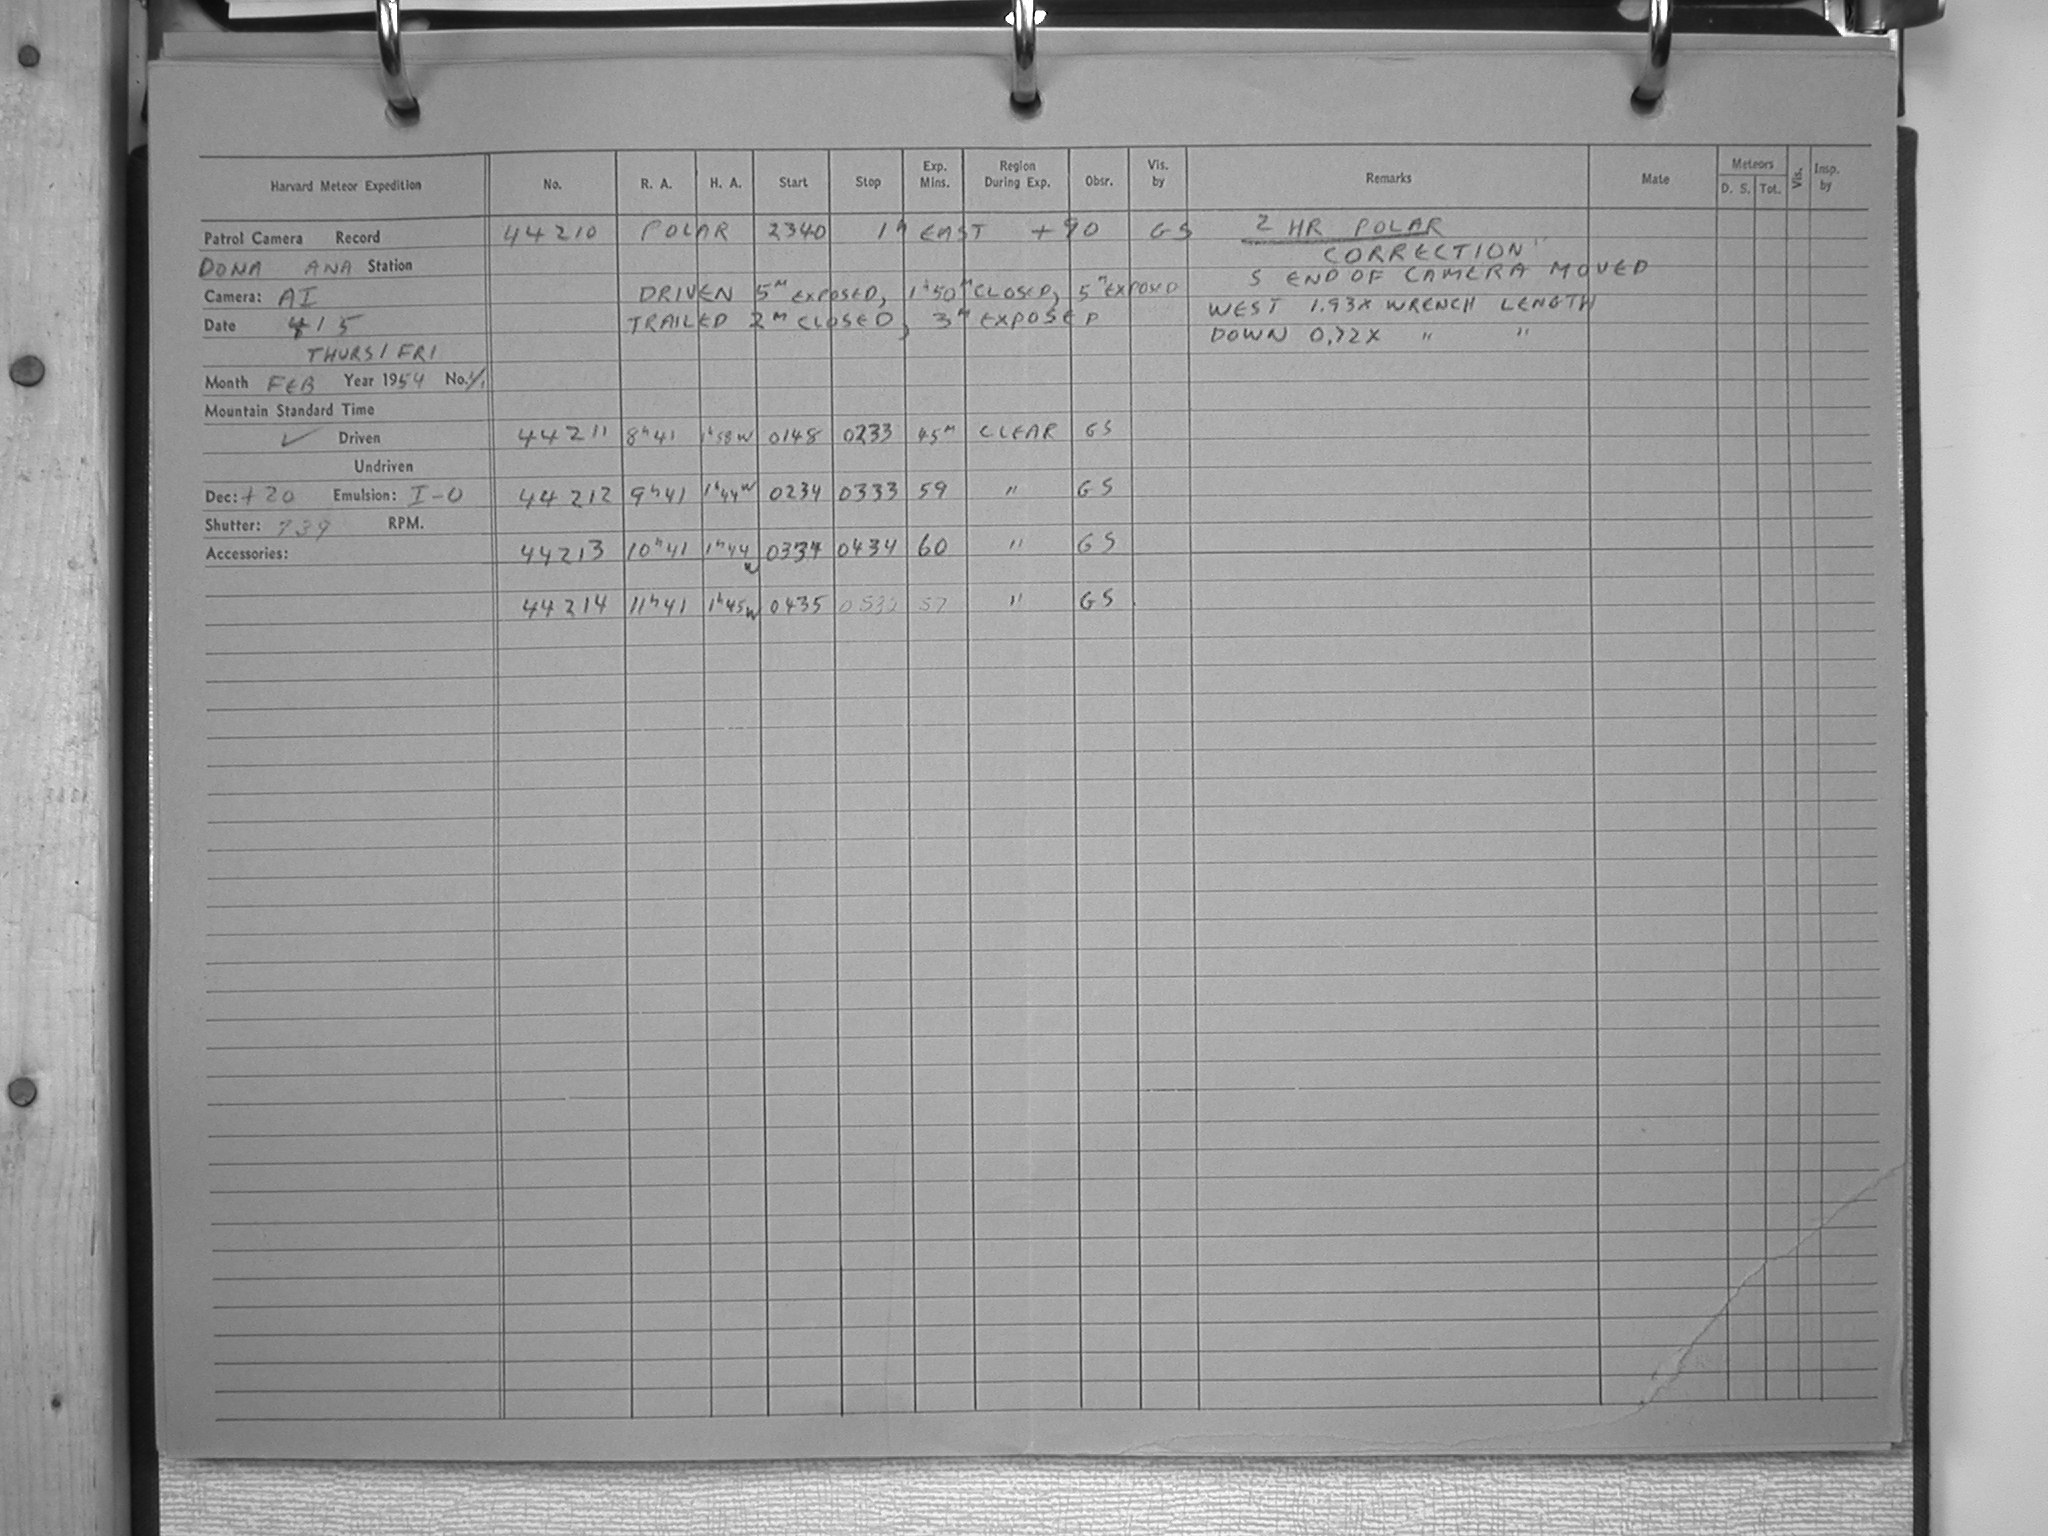 Harvard Meteor Expedition No. R. A. H. A. Start Stop Exp. Mins. Region During Exp. Obsr. Vis. by Remarks Mate Meteors D. S. Tot. Vis. Insp. by
Patrol Camera Record 44210 POLAR 2340 1h EAST +90 GS 2 HR POLAR
CORRECTION"
DONA ANA Station S END OF CAMERA MOVED
Camera: AI DRIVEN 5M EXPOSED, 1h50MCLOSED, 5MEXPOSED WEST 1.93X WRENCH LENGTH
Date 4/5 TRAILED 2M CLOSED, 3M EXPOSED DOWN 0.72X " "
THURS/FRI
Month FEB Year 1954 No. 1/1
Mountain Standard Time
✓ Driven 44211 8h41 1h58W 0148 0233 45M CLEAR GS
Undriven
Dec: +20 Emulsion: I-O 44212 9h41 1h44W 0234 0333 59 " GS
Shutter: RPM.
Accessories: 44213 10h41 1h44W 0334 0434 60 " GS
44214 11h41 1h45W 0435 57 " GS